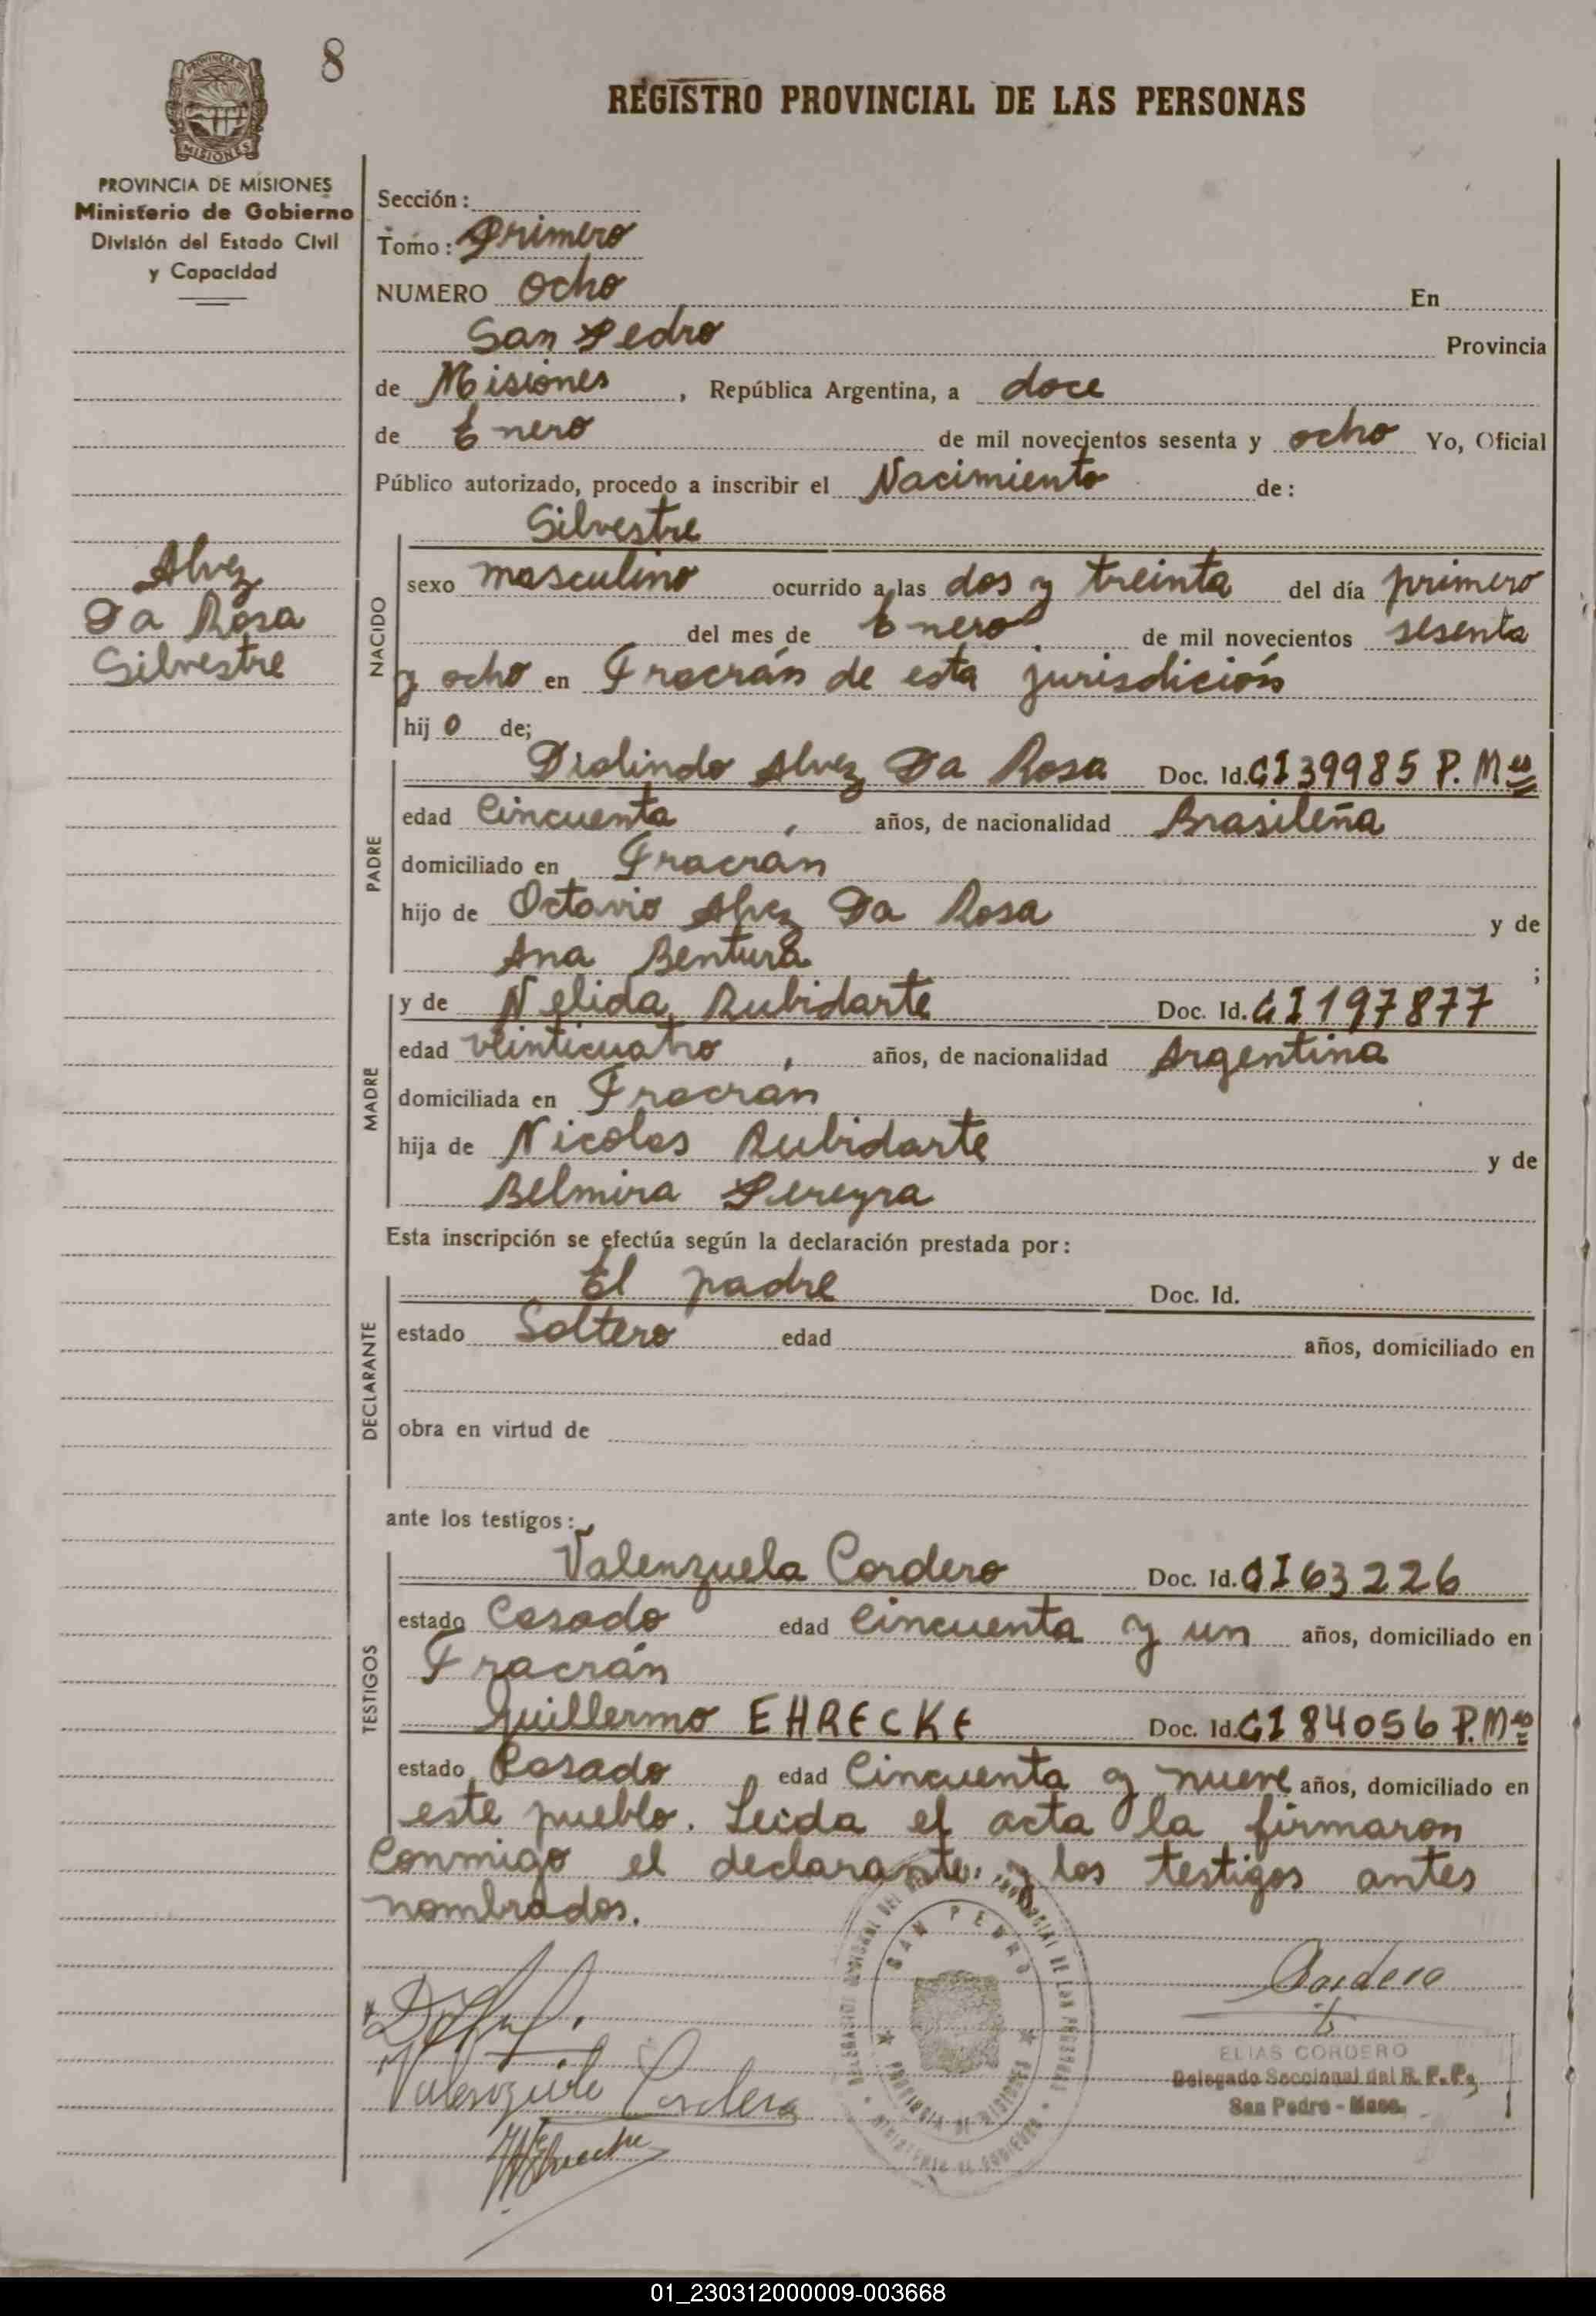 8
REGISTRO PROVINCIAL DE LAS PERSONAS
PROVINCIA DE MISIONES
MISIONES
PROVINCIA DE MISIONES
Ministerio de Gobierno
División del Estado Civil
y Capacidad
Alvez
Da Rosa
Silvestre
Sección:
Tomo: Primero
NUMERO ocho En
San Pedro Provincia
de Misiones, República Argentina, a doce
de Enero de mil novecientos sesenta y ocho Yo, Oficial
Público autorizado, procedo a inscribir el Nacimiento de:
NACIDO
Silvestre
sexo masculino ocurrido a las dos y treinta del día primero
del mes de Enero de mil novecientos sesenta
y ocho en Fracrán de esta jurisdición
hijo de;
PADRE
Diolindo Alvez Da Rosa Doc. Id. CI 39985 P. Mes
edad Cincuenta, años, de nacionalidad Brasileña
domiciliado en Fracrán
hijo de Octavio Alvez Da Rosa y de
Ana Bentura ;
MADRE
y de Nelida Rubidarte Doc. Id. CI 197877
edad veinticuatro, años, de nacionalidad Argentina
domiciliada en Fracrán
hija de Nicolas Rubidarte y de
Belmira Pereyra
Esta inscripción se efectúa según la declaración prestada por:
DECLARANTE
El padre Doc. Id.
estado Soltero edad años, domiciliado en
obra en virtud de
ante los testigos:
TESTIGOS
Valenzuela Cordero Doc. Id. CI 63226
estado Casado edad Cincuenta y un años, domiciliado en
Fracrán
Guillermo EHRECKE Doc. Id. CI 84056 P. Mes
estado Casado, edad Cincuenta y nueve años, domiciliado en
este pueblo. Leida el acta la firmaron
Conmigo el declarante y los testigos antes
nombrados.
SAN PEDRO
PROVINCIA DE MISIONES
MINISTERIO DE GOBIERNO
Cordero
Valenzuela Cordero
ELIAS CORDERO
Delegado Seccional del R. P. P.
San Pedro - Mnes.
01_230312000009-003668